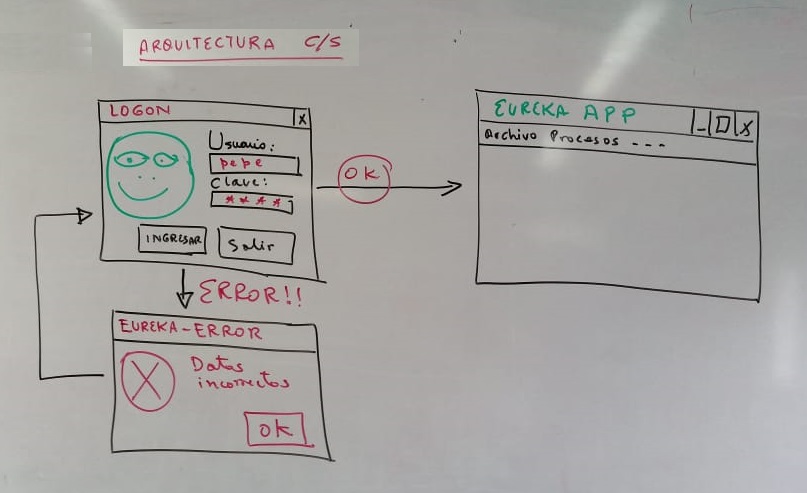 ARQUITECTURA C/S
LOGON X
Usuario:
pepe
Clave:
****
INGRESAR Salir
OK
EUREKA APP _ □ X
Archivo Procesos ---
ERROR!!
EUREKA-ERROR
X Datos
incorrectos
OK